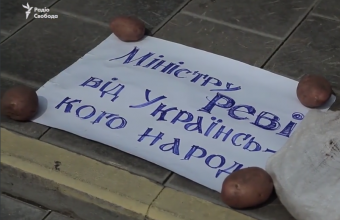 Радіо
Свобода
Міністру
Реві
від Українсь-
кого народ